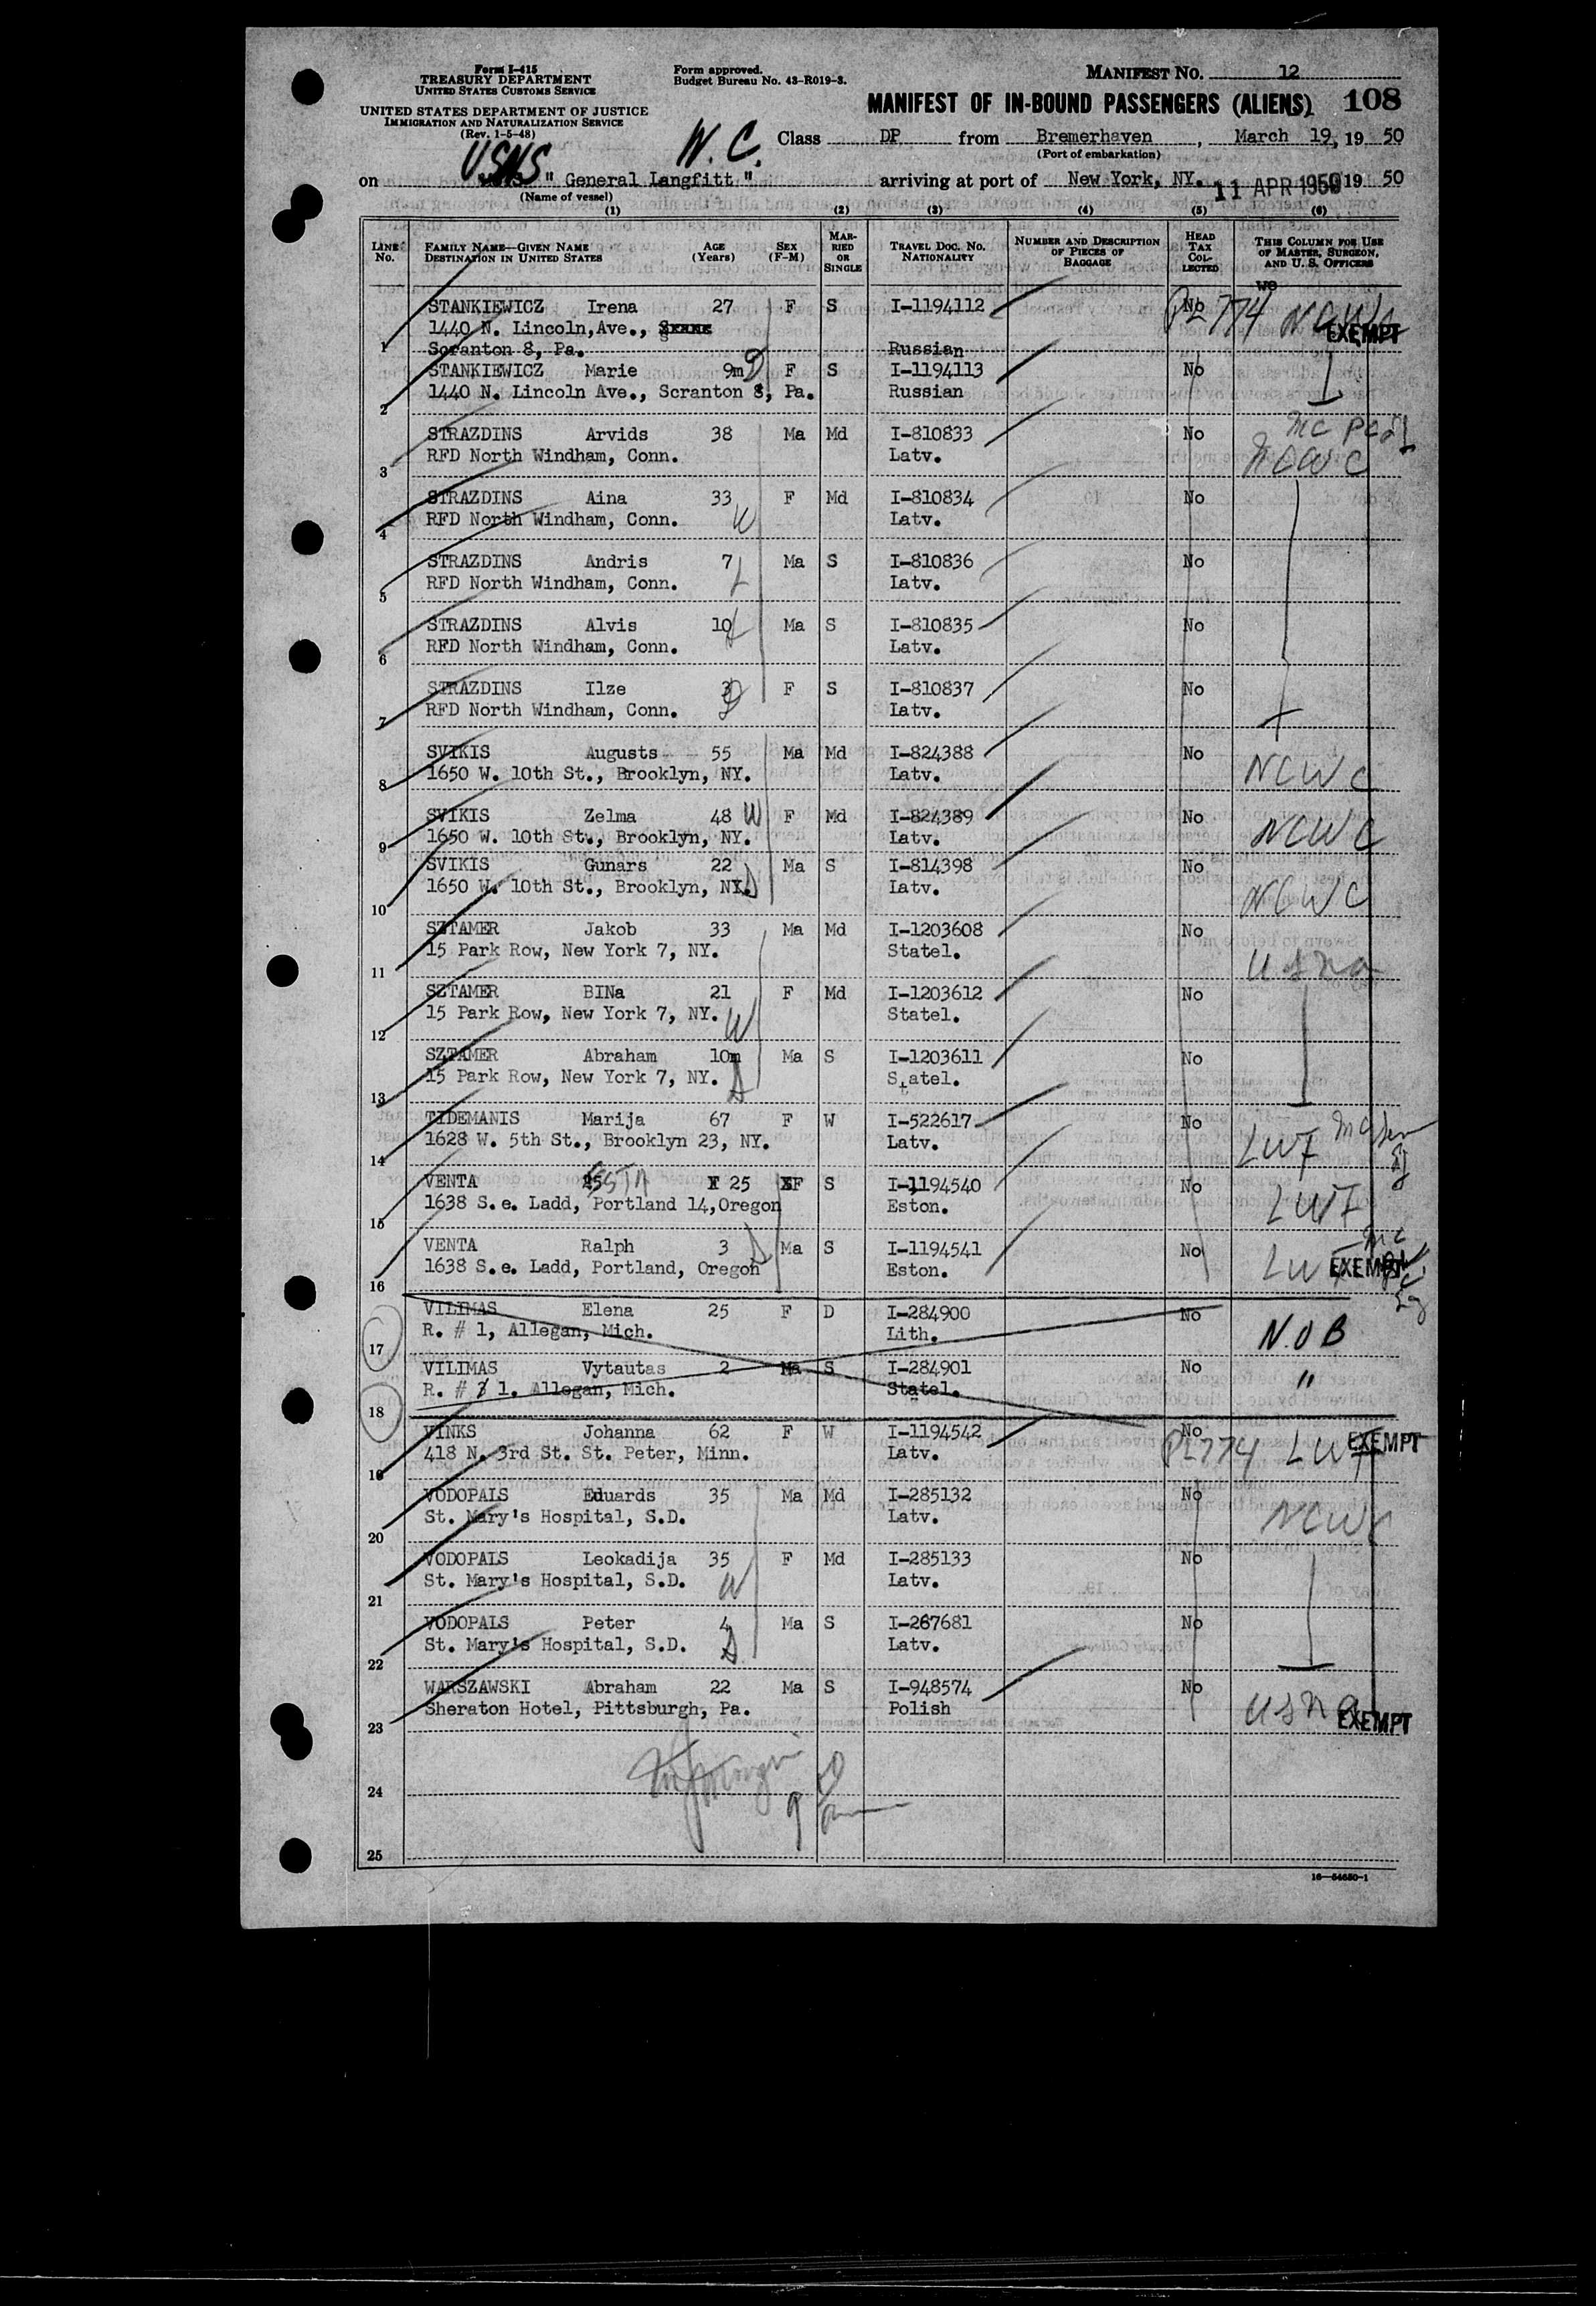 Form I-415
TREASURY DEPARTMENT
UNITED STATES CUSTOMS SERVICE
UNITED STATES DEPARTMENT OF JUSTICE
IMMIGRATION AND NATURALIZATION SERVICE
(Rev. 1-5-48)
Form approved.
Budget Bureau No. 43-R019-3.
MANIFEST NO. 12
MANIFEST OF IN-BOUND PASSENGERS (ALIENS) 108
W.C. Class DP from Bremerhaven, March 19, 19 50
(Port of embarkation)
on USNS " General Langfitt " arriving at port of New York, NY. 11 APR 1950 19 50
(Name of vessel)
(1) (2) (3) (4) (5) (6)
LINE No. FAMILY NAME—GIVEN NAME DESTINATION IN UNITED STATES AGE (Years) SEX (F-M) MARRIED OR SINGLE TRAVEL DOC. NO. NATIONALITY NUMBER AND DESCRIPTION OF PIECES OF BAGGAGE HEAD TAX COLLECTED THIS COLUMN FOR USE OF MASTER, SURGEON, AND U. S. OFFICERS
STANKIEWICZ Irena 27 F S I-1194112 No PL 774 NCWC EXEMPT
1440 N. Lincoln, Ave.,
1 Scranton 8, Pa. Russian
STANKIEWICZ Marie 9m D F S I-1194113 No
2 1440 N. Lincoln Ave., Scranton 8, Pa. Russian
STRAZDINS Arvids 38 Ma Md I-810833 No
3 RFD North Windham, Conn. Latv. NCWC
STRAZDINS Aina 33 F Md I-810834 No
4 RFD North Windham, Conn. W Latv.
STRAZDINS Andris 7 Ma S I-810836 No
5 RFD North Windham, Conn. Latv.
STRAZDINS Alvis 10 Ma S I-810835 No
6 RFD North Windham, Conn. Latv.
STRAZDINS Ilze 3 F S I-810837 No
7 RFD North Windham, Conn. Latv.
SVIKIS Augusts 55 Ma Md I-824388 No
8 1650 W. 10th St., Brooklyn, NY. Latv. NCWC
SVIKIS Zelma 48 W F Md I-824389 No
9 1650 W. 10th St., Brooklyn, NY. Latv. NCWC
SVIKIS Gunars 22 Ma S I-814398 No
10 1650 W. 10th St., Brooklyn, NY. Latv. NCWC
SZTAMER Jakob 33 Ma Md I-1203608 No
11 15 Park Row, New York 7, NY. Statel. USNA
SZTAMER BINa 21 F Md I-1203612 No
12 15 Park Row, New York 7, NY. W Statel.
SZTAMER Abraham 10m Ma S I-1203611 No
13 15 Park Row, New York 7, NY. Statel.
TIDEMANIS Marija 67 F W I-522617 No
14 1628 W. 5th St., Brooklyn 23, NY. Latv. LWF
VENTA 25 F S I-1194540 No
15 1638 S.e. Ladd, Portland 14, Oregon Eston. LWF
VENTA Ralph 3 Ma S I-1194541 No
16 1638 S.e. Ladd, Portland, Oregon Eston. LWF EXEMPT
VILIMAS Elena 25 F D I-284900 No
17 R. # 1, Allegan, Mich. Lith. N.O.B
VILIMAS Vytautas 2 Ma S I-284901 No
18 R. # 1. Allegan, Mich. Statel. "
VINKS Johanna 62 F W I-1194542 No
19 418 N. 3rd St. St. Peter, Minn. Latv. PL 774 LWF EXEMPT
VODOPALS Eduards 35 Ma Md I-285132 No
20 St. Mary's Hospital, S.D. Latv. NCWC
VODOPALS Leokadija 35 F Md I-285133 No
21 St. Mary's Hospital, S.D. W Latv.
VODOPALS Peter 4 Ma S I-267681 No
22 St. Mary's Hospital, S.D. Latv.
WARSZAWSKI Abraham 22 Ma S I-948574 No
23 Sheraton Hotel, Pittsburgh, Pa. Polish USNA EXEMPT
24
25
16—54650-1